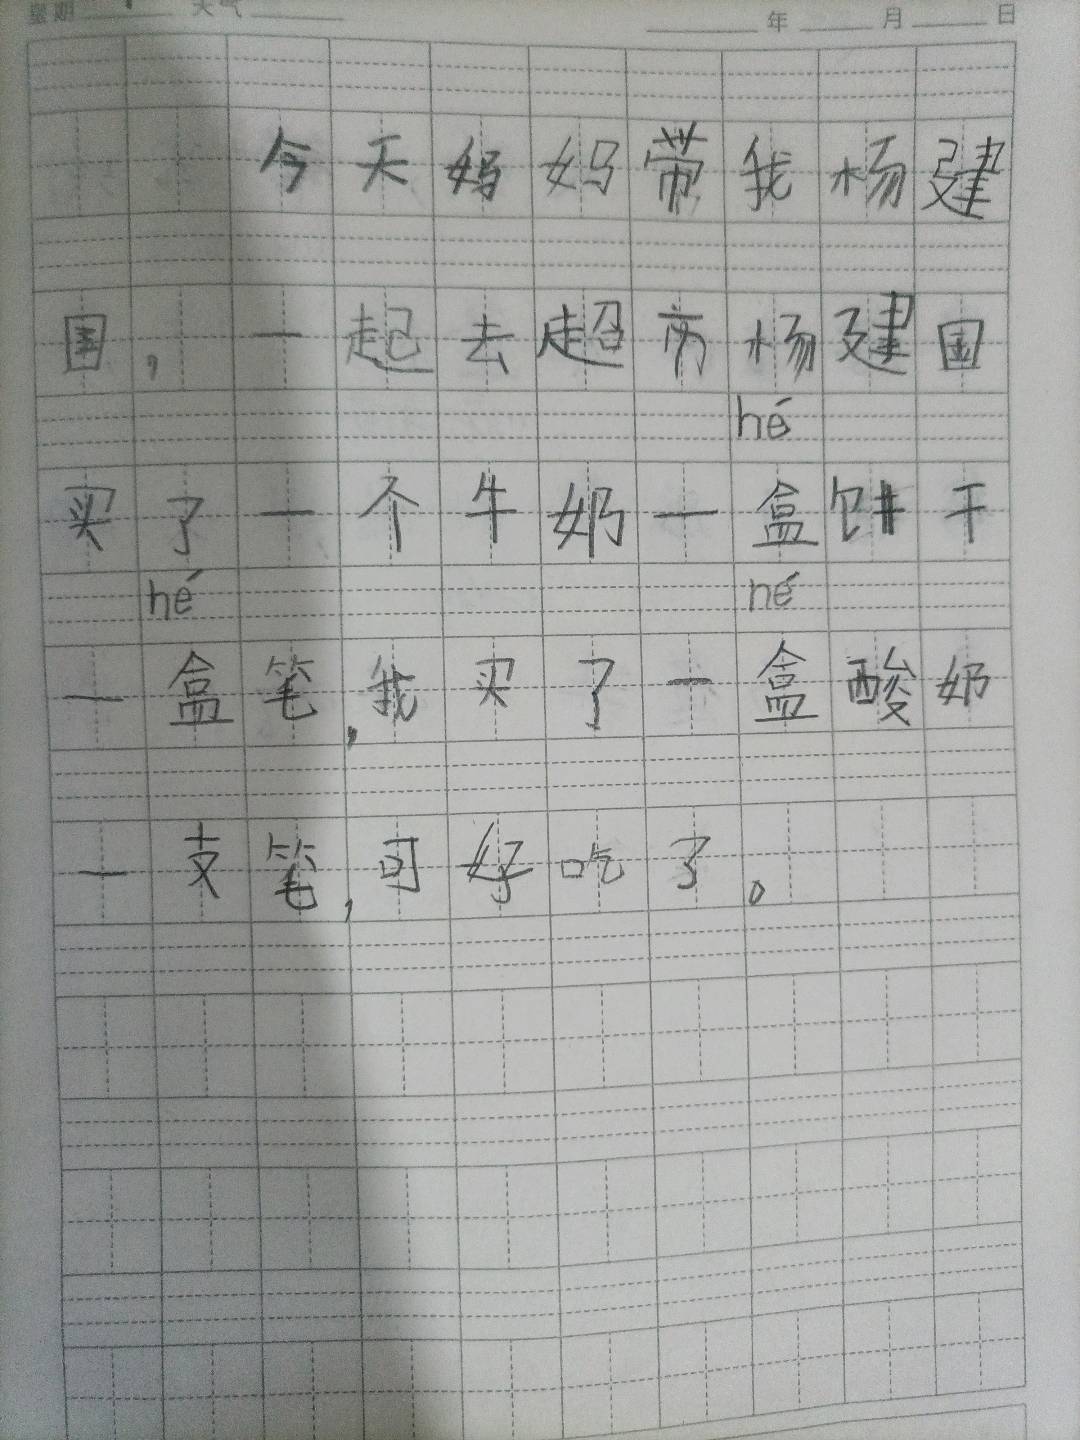 星期 天气 年 月 日
今天妈妈带我杨建
国，一起去超市杨建国
hé
买了一个牛奶一盒饼干
hé hé
一盒笔，我买了一盒酸奶
一支笔，可好吃了。